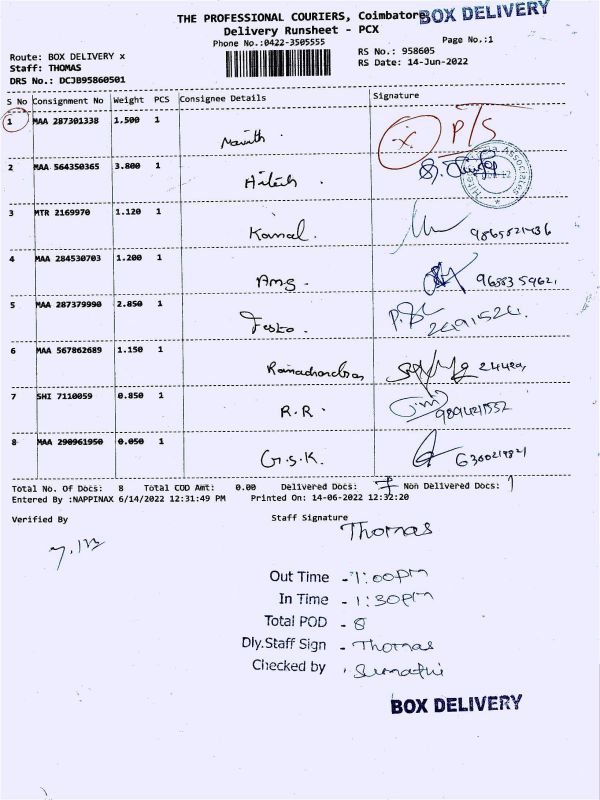 THE PROFESSIONAL COURIERS, Coimbatore
BOX DELIVERY
Delivery Runsheet - PCX
Phone No.:0422-3505555
Page No.:1
Route: BOX DELIVERY x
RS No.: 958605
Staff: THOMAS
RS Date: 14-Jun-2022
DRS No.: DCJB95860501
S No Consignment No Weight PCS Consignee Details Signature
1 MAA 287301338 1.500 1 x P/S
2 MAA 564350365 3.800 1 Hitesh
3 MTR 2169970 1.120 1 Kamal.
4 MAA 284530703 1.200 1 AMS.
5 MAA 287379990 2.850 1
6 MAA 567862689 1.150 1 Ramachandran
7 SHI 7110059 0.850 1 R.R.
8 MAA 290961950 0.050 1 G.S.K.
Total No. Of Docs: 8 Total COD Amt: 0.00 Delivered Docs: 7 Non Delivered Docs: 1
Entered By :NAPPINAX 6/14/2022 12:31:49 PM Printed On: 14-06-2022 12:32:20
Verified By Staff Signature
Thomas
Out Time - 1:00pm
In Time - 1:30pm
Total POD - 8
Dly.Staff Sign - Thomas
Checked by . Sumathi
BOX DELIVERY